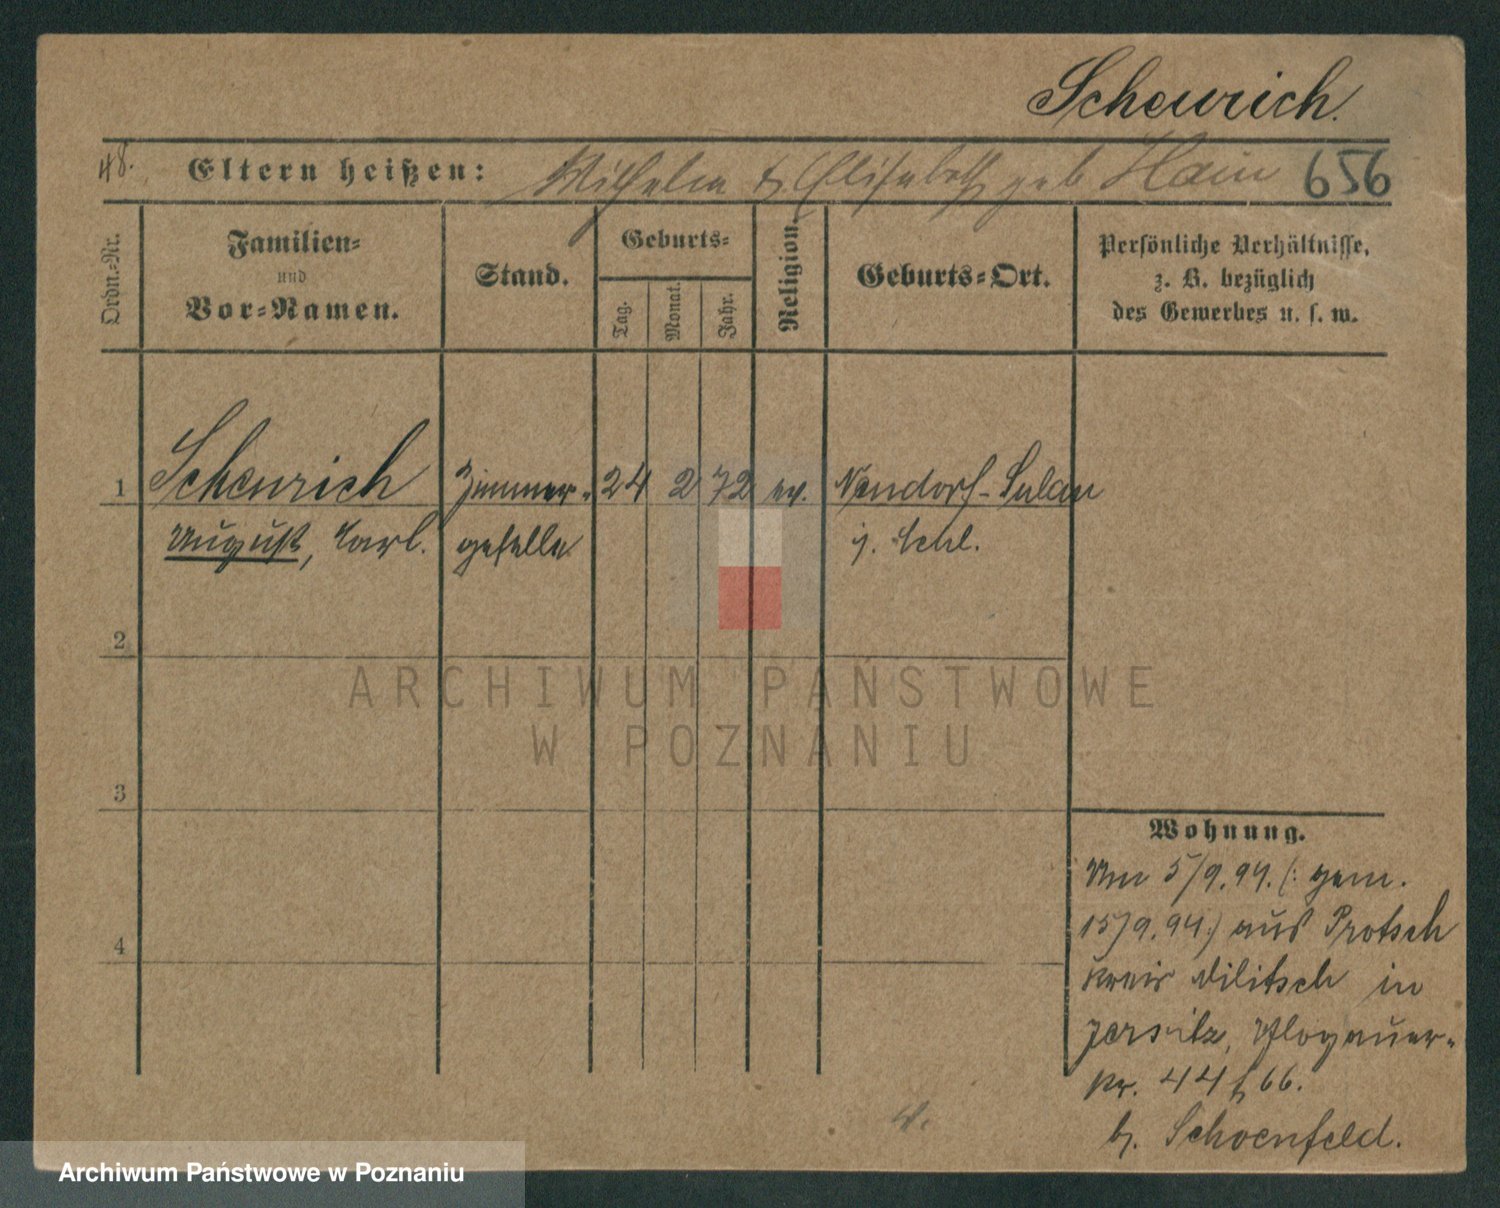 Scheurich.
48. Eltern heißen: Wilhelm & Elisabeth geb Hain 656
Ordn.-Nr.
Familien-
und
Vor-Namen.
Stand.
Geburts-
Tag.
Monat.
Jahr.
Religion.
Geburts-Ort.
Persönliche Verhältnisse,
z. B. bezüglich
des Gewerbes u. s. w.
1 Scheurich Zimmer- 24 2 72 ev. Neudorf-Sulau
August, Carl. geselle i. Schl.
2
ARCHIWUM PAŃSTWOWE
W POZNANIU
3
4
Wohnung.
Am 5/9.94. (: gem.
15/9.94.) aus Protsch
Kreis Militsch in
Jersitz, Glogauer-
str. 44/66.
b. Schoenfeld.
Archiwum Państwowe w Poznaniu